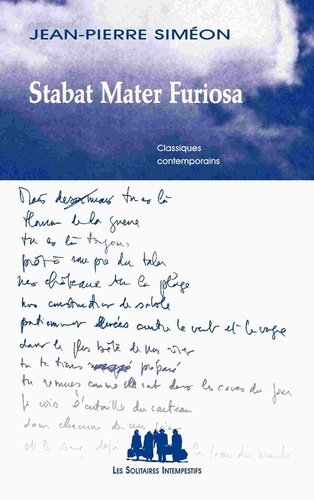 JEAN-PIERRE SIMÉON
Stabat Mater Furiosa
Classiques
contemporains
Mais désormais tu es là
Homme de la guerre
tu es là toujours
prêt à rompre du talon
nos châteaux sur la plage
nos constructions de sable
patiemment levées contre le vent et la vague
dans le plus bête de nos rêves
tu te tiens préparé
tu remues comme un chat dans les caves du jour
je vois l'entaille du couteau
dans chacune de
et le sang déjà la peau du monde
LES SOLITAIRES INTEMPESTIFS